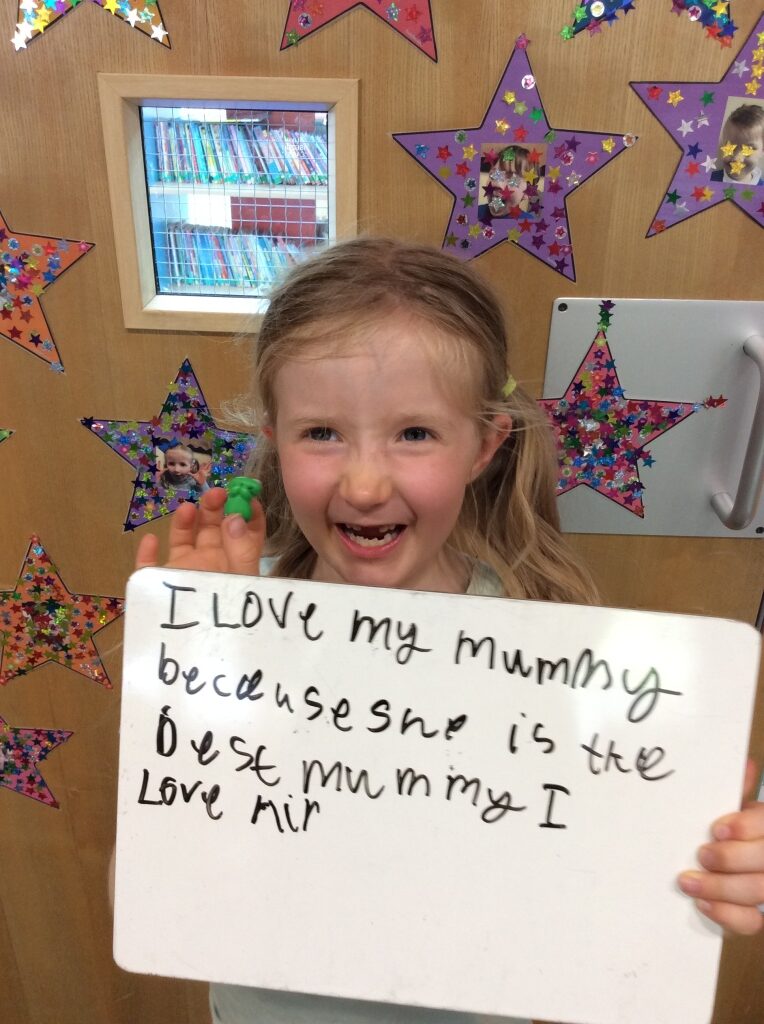 I LOVE my mummy
because she is the
best mummy I
Love hir